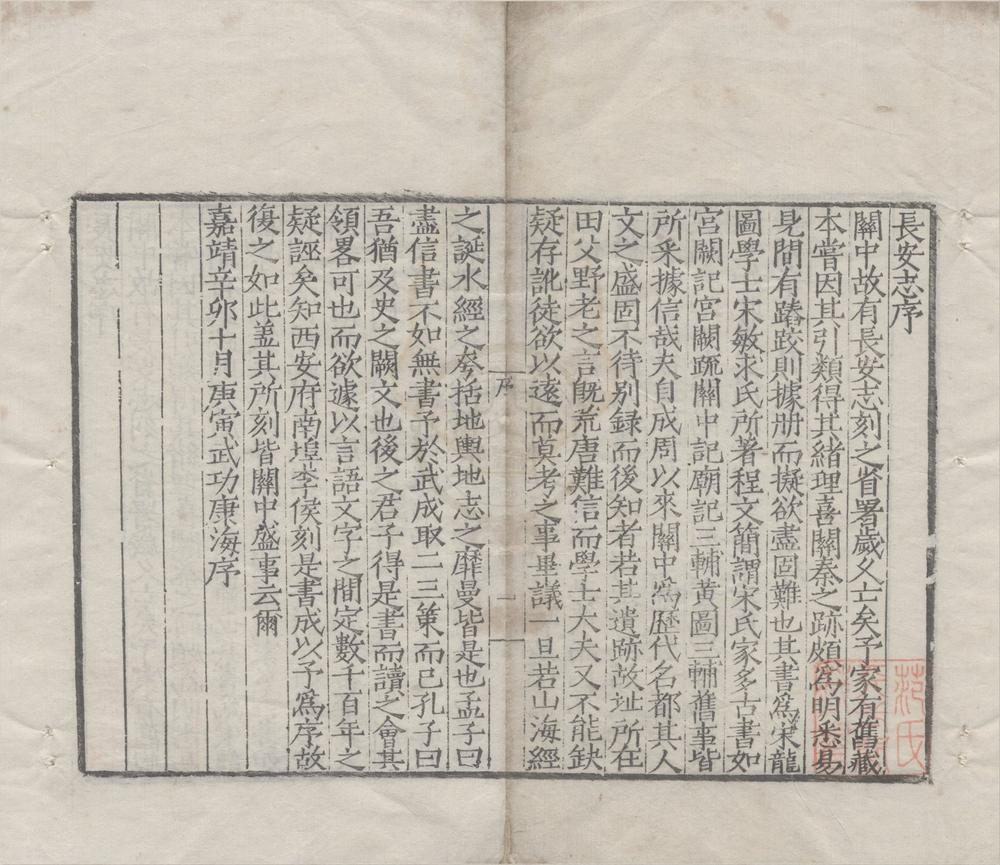 長安志序
關中故有長安志刻之省署歲久亡矣予家有舊藏
本嘗因其引類得其緒理喜關秦之跡頗爲明悉易
見間有踳跤則據册而擬欲盡固難也其書爲宋龍
圖學士宋敏求氏所著程文簡謂宋氏家多古書如
宮闕記宮闕疏關中記廟記三輔黃圖三輔舊事皆
所采據信哉夫自成周以來關中爲歷代名都其人
文之盛固不待別録而後知者若其遺跡故址所在
田父野老之言旣荒唐難信而學士大夫又不能缺
疑存訛徒欲以遠而莫考之事畢議一旦若山海經
序
一
之誕水經之參括地輿地志之靡曼皆是也孟子曰
盡信書不如無書予於武成取二三策而已孔子曰
吾猶及史之闕文也後之君子得是書而讀之會其
領畧可也而欲遽以言語文字之間定數千百年之
疑誣矣知西安府南埠李侯刻是書成以予爲序故
復之如此葢其所刻皆關中盛事云爾
嘉靖辛卯十月庚寅武功康海序
范氏